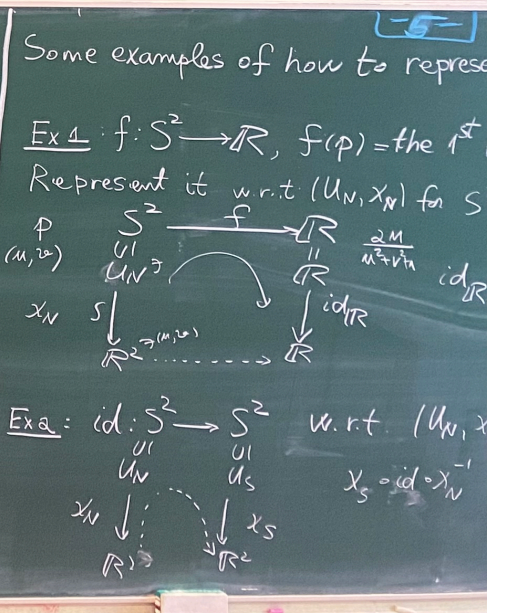 -5-
Some examples of how to represe
Ex 1: f: S² → ℝ, f(p) = the 1st
Represent it w.r.t. (U_N, x_N) for S
p S² f → ℝ 2u/(u²+v²+1)
(u,v) ∪| || id_ℝ
U_N ∋ ℝ
x_N ≀↓ ↓ id_ℝ
ℝ² ∋ (u,v) ⇢ ℝ
Ex 2: id: S² → S² w.r.t. (U_N, x
∪| ∪|
U_N U_S x_S ∘ id ∘ x_N⁻¹
x_N ↓ ↓ x_S
ℝ² ℝ²